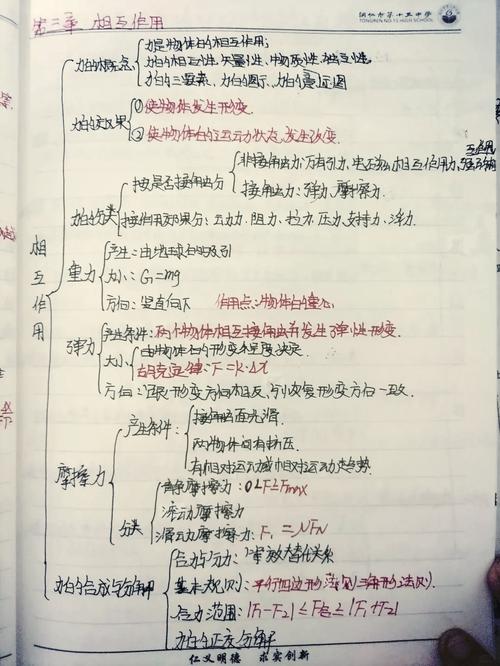 铜仁市第十五中学
TONGREN NO.15 HIGH SCHOOL
第三章 相互作用
相互作用
力的概念
力是物体的相互作用;
力的相互性、矢量性、物质性、独立性。
力的三要素、力的图示、力的示意图
力的效果
①使物体发生形变.
②使物体的运动状态发生改变.
力的分类
按是否接触分
非接触力:万有引力、电磁相互作用力、强弱相互作用
接触力:弹力、摩擦力.
按作用效果分:动力、阻力、拉力、压力、支持力、浮力.
重力
产生:由地球的吸引
大小:G=mg
方向:竖直向下 作用点:物体的重心
弹力
产生条件:两个物体相互接触并发生弹性形变.
大小
由物体的形变程度决定
胡克定律:F=k·Δx
方向:跟形变方向相反,与恢复形变方向一致.
摩擦力
产生条件:
接触面
两物体间有挤压
有相对运动或相对运动趋势
分类
静摩擦力:0<F≤Fmax
滚动摩擦力
滑动摩擦力:F₁=μFN
力的合成与分解
合力与分力:等效替代关系
基本规则:平行四边形法则(三角形法则).
合力范围:|F1-F2|≤F合≤|F1+F2|
力的正交分解
仁义明德 求实创新